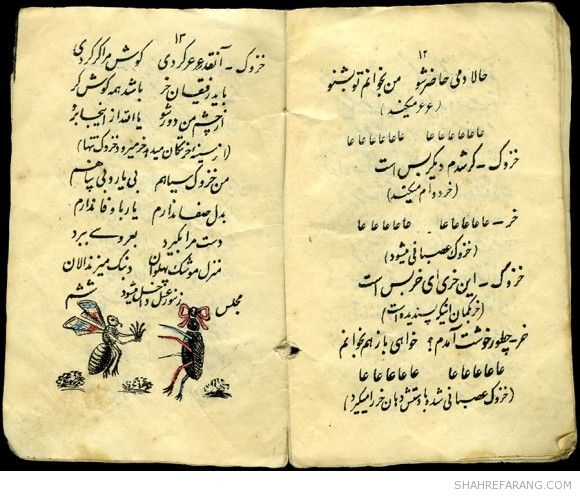 ۱۲
حالا دمی حاضر شو من بخوانم تو بشنو
(عرعر میکند)
عا عا عا عا عا عا عا عا عا عا
خزوک - کر شدم دیگر بس است
(خر دوام میکند)
خر - عا عا عا عا عا عا عا عا عا عا
(خزوک عصبانی میشود)
خزوک - این خری ای خر بس است
(خر گمان اینکه پسندیده است)
خر - چطور خوشت آمدم؟ خواهی باز هم بخوانم
عا عا عا عا عا عا عا عا عا عا
(خزوک عصبانی شده با دستش دهان خر را میگیرد)
۱۳
خزوک - آنقدر عرعر کردی گوش مرا کر کردی
باید رفیقان خر باشد همه گوش کر
از چشم من دور شو یا الله از اینجا برو
(از سینه خر تکان میدهد خر میرود خزوک تنها)
من خزوک سیاهم بی یار و بی پناهم
بدل صفا ندارم یار با وفا ندارم
دست مرا بگیرد بعروسی ببرد
منزل موشک پهلوان دنبک میزند الان
مجلس ششم
زنبور عسل داخل میشود
SHAHREFARANG.COM